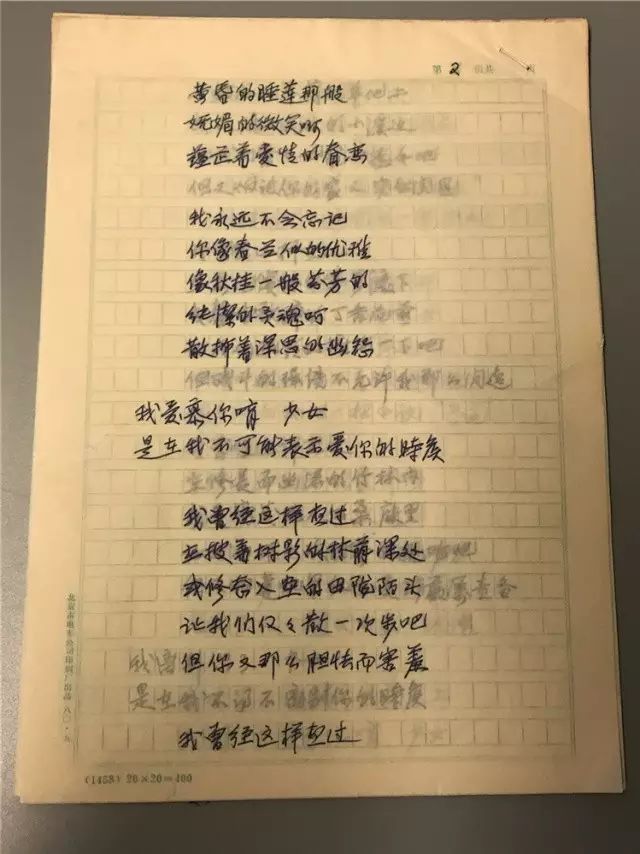 第2页共 页
黄昏的睡莲那般
妩媚的微笑呵
蕴正着爱情的眷恋
我永远不会忘记
你像春兰似的优雅
像秋桂一般芬芳的
纯潔的灵魂呵
散抑着深思的幽怨
我爱慕你唷 少女
是在我不可能表示爱你的時侯
我曾经这样想过
在披着树影的林荫深处
或修 入 的田陇陌头
让我们仅仅散一次步吧
但你又那么胆怯而害羞
我曾经这样想过
北京市电车公司印刷厂出品 八〇·五
(1453) 20×20=400